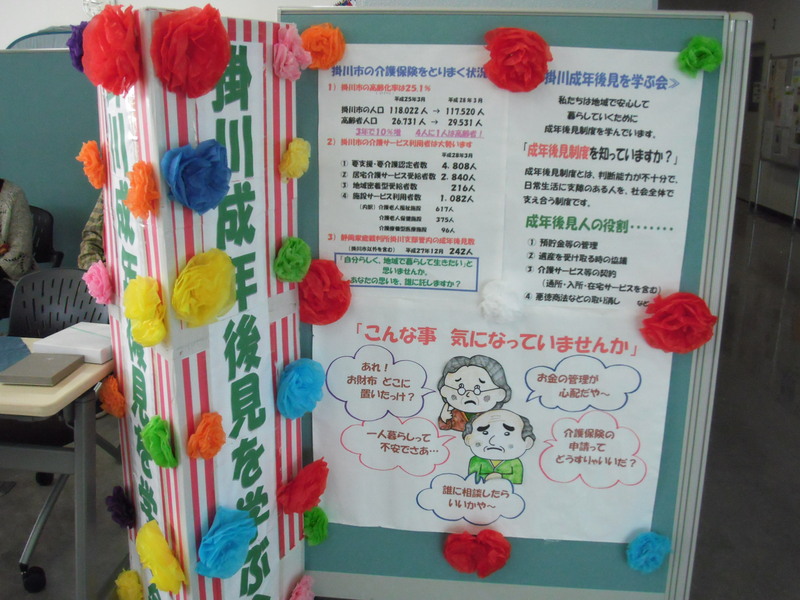 掛川成年後見を学ぶ
掛川成年後見を学
掛川市の介護保険をとりまく状況
1）掛川市の高齢化率は25.1％
平成25年3月 平成28年3月
掛川市の人口 118,022人 → 117,520人
高齢者人口 26,731人 → 29,531人
3年で10％増 4人に1人は高齢者！
2）掛川市の介護サービス利用者は大勢います
平成28年3月
① 要支援・要介護認定者数 4,808人
② 居宅介護サービス受給者数 2,840人
③ 地域密着型受給者数 216人
④ 施設サービス利用者数 1,082人
（内訳）介護老人福祉施設 617人
介護老人保健施設 375人
介護療養型医療施設 96人
3）静岡家庭裁判所掛川支部管内の成年後見数
（掛川市以外を含む） 平成27年12月 242人
「自分らしく、地域で暮らして生きたい」と
思いませんか。
あなたの思いを、誰に託しますか？
掛川成年後見を学ぶ会》
私たちは地域で安心して
暮らしていくために
成年後見制度を学んでいます。
「成年後見制度を知っていますか？」
成年後見制度とは、判断能力が不十分で、
日常生活に支障のある人を、社会全体で
支え合う制度です。
成年後見人の役割・・・・・・・
① 預貯金等の管理
② 遺産を受け取る時の協議
③ 介護サービス等の契約
（通所・入所・在宅サービスを含む）
4 悪徳商法などの取り消し など
「こんな事 気になっていませんか」
あれ！
お財布 どこに
置いたっけ？
お金の管理が
心配だや～
一人暮らしって
不安でさあ…
介護保険の
申請って
どうすりゃいいだ？
誰に相談したら
いいかや～